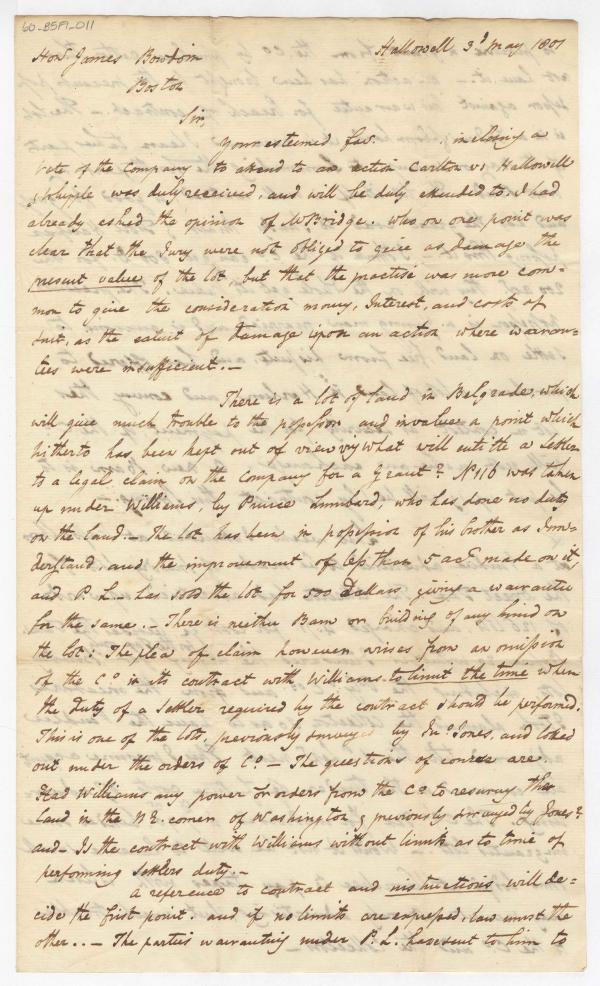 60-B5F1-011
Hallowell 3d May 1801
Honl James Bowdoin
Boston
Sir,
Your esteemed fav. inclosing a
Vote of the Company to attend to an action Carlton vs Hallowell
& Whipple was duly received, and will be duly attended to. I had
already asked the opinion of Mr Bridge. who on one point was
clear that the Jury were not obliged to give as damage the
present value of the lot, but that the practise was more com-
mon to give the consideration money, Interest, and costs of
suit, as the extent of damage upon an action where warran-
tees were insufficient. —
There is a lot of land in Belgrade, which
will give much trouble to the possessor and involve a point which
hitherto has been kept out of view viz what will entitle a settler
to a legal claim on the company for a Grant? No 116 was taken
up under Williams, by Prince Lumbard, who has done no duty
on the land. — The lot has been in possession of his brother as I un-
derstand, and the improvement of less than 5 acs made on it,
and P. L — has sold the lot for 500 Dollars giving a warrantee
for the same. — There is neither Barn or building of any kind on
the lot: The plea of claim however arises from an omission
of the Co in its contract with Williams to limit the time when
the duty of a settler required by the contract should be performed.
This is one of the lots, previously surveyed by Jno Jones, and lotted
out under the orders of Co — The questions of course are
Had Williams any power or orders from the Co to resurvey the
land in the N E. corner of Washington & previously surveyed by Jones?
and — Is the contract with Williams without limits as to time of
performing settlers duty. —
a reference to contract and instructions will de-
cide the first point. and if no limits are expressed, law must the
other.. — The parties warranting under P. L. have sent to him to